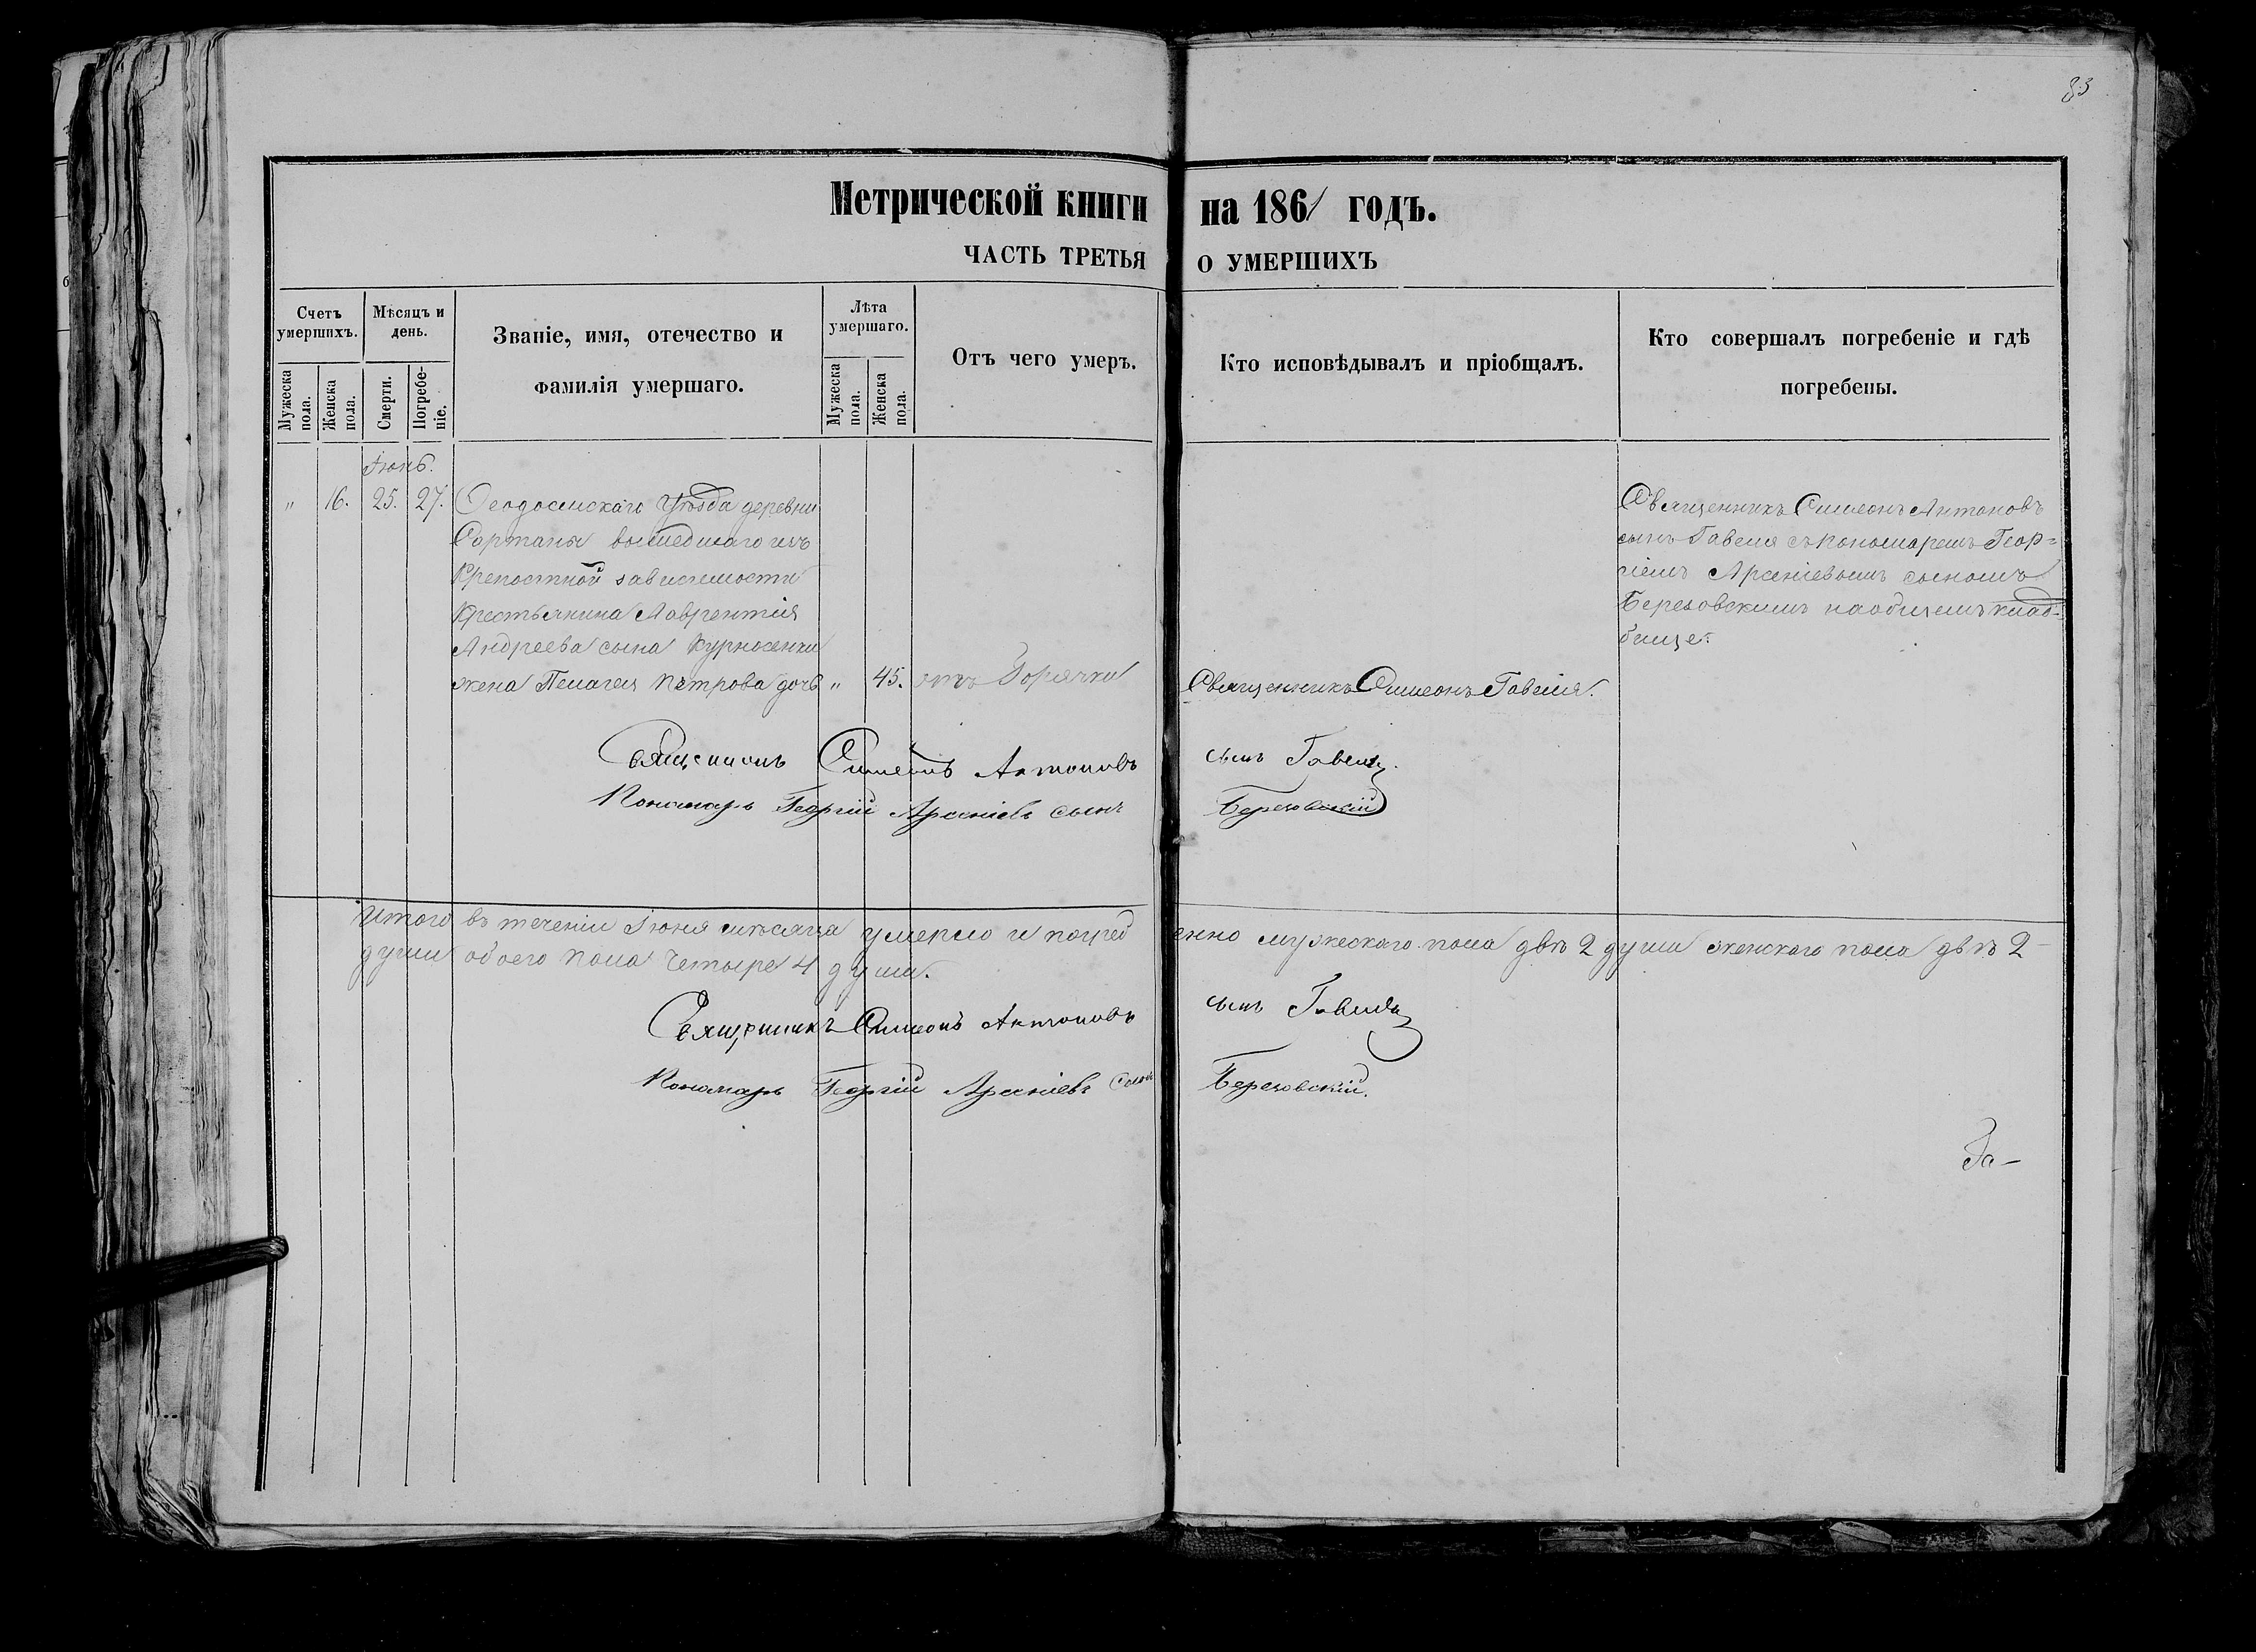 83
Метрической книги на 1861 годъ.
ЧАСТЬ ТРЕТЬЯ О УМЕРШИХЪ
Счетъ умершихъ.
Мѣсяцъ и день.
Званіе, имя, отечество и фамилія умершаго.
Лѣта умершаго.
Отъ чего умеръ.
Кто исповѣдывалъ и пріобщалъ.
Кто совершалъ погребеніе и гдѣ погребены.
Мужеска пола.
Женска пола.
Смерти.
Погребеніе.
Мужеска пола.
Женска пола.
Іюнь.
" 16. 25. 27. Ѳеодосійскаго Уѣзда деревни
Сортаная вышедшаго изъ
Крепостной зависимости
Крестьянина Лаврентія
Андреева сына Курносенки
жена Пелагея Петрова дочь " 45. отъ Горячки
Священникъ Симеонъ Гавеля.
Священникъ Симеонъ Антоновъ
сынъ Гавеля съ пономаремъ Геор=
гіемъ Арсеніевымъ сыномъ
Березовскимъ на общемъ клад-
бище.
Священникъ Симеонъ Антоновъ сынъ Гавеля.
Пономарь Георгій Арсеніевъ сынъ Березовскій
Итого въ теченіи Іюня мѣсяца умерло и погребенно мужескаго пола двѣ 2 души женскаго пола двѣ 2
души обоего пола четыре 4 души.
Священникъ Симеонъ Антоновъ сынъ Гавеля
Пономарь Георгій Арсеніевъ сынъ Березовскій.
За-